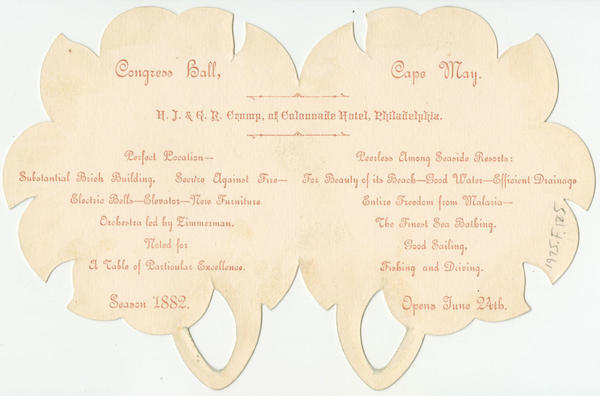 Congress Hall,
Cape May.
H. J. & G. R. Crump, of Colonnade Hotel, Philadelphia.
Perfect Location—
Substantial Brick Building, Secure Against Fire—
Electric Bells—Elevator—New Furniture
Orchestra led by Zimmerman.
Noted for
A Table of Particular Excellence.
Season 1882.
Peerless Among Seaside Resorts:
For Beauty of its Beach—Good Water—Efficient Drainage
Entire Freedom from Malaria—
The Finest Sea Bathing.
Good Sailing,
Fishing and Driving.
Opens June 24th.
1975.F.125